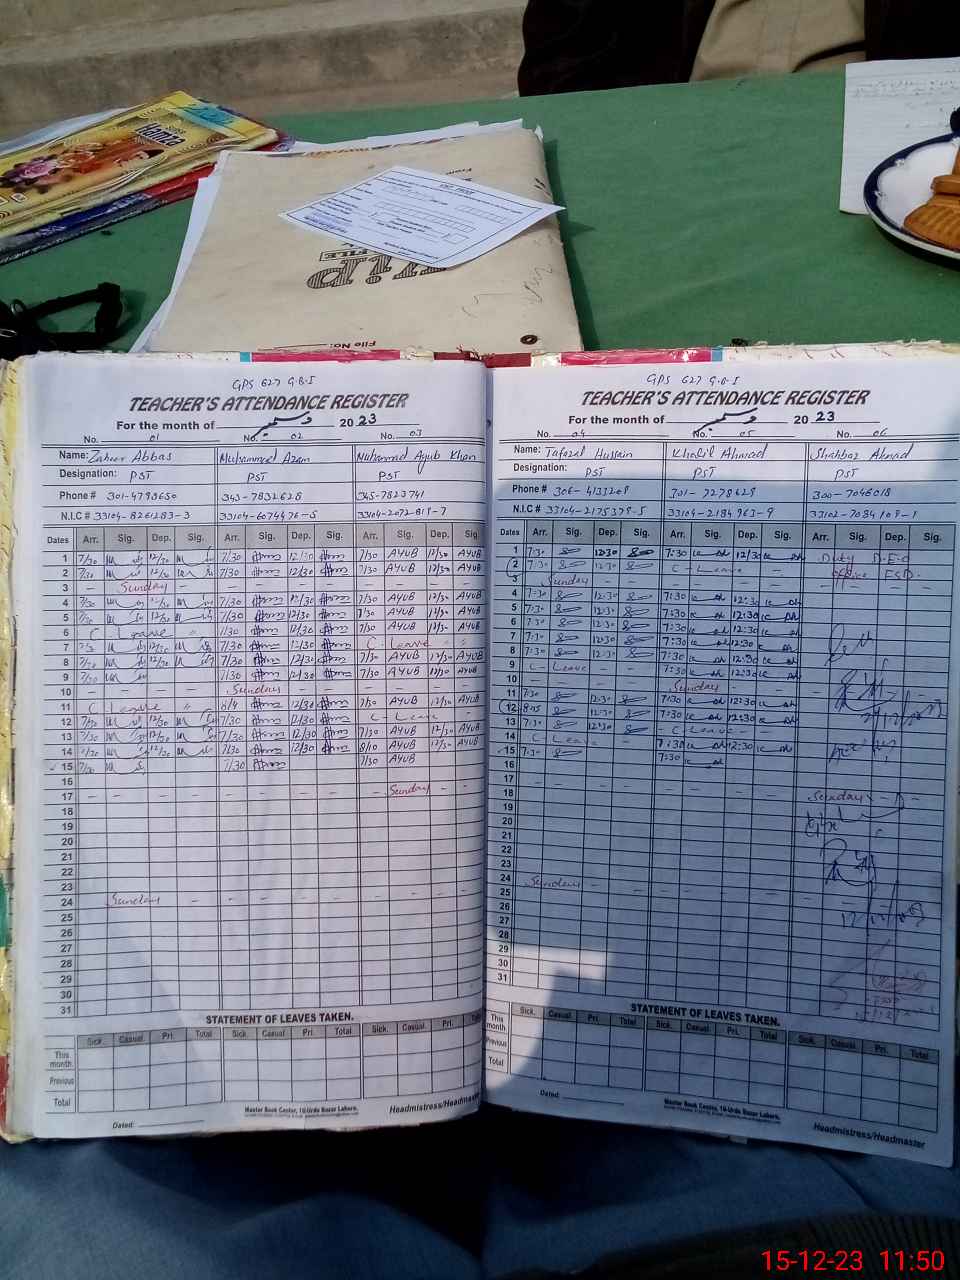 Hamza
FILE
File No:
GPS 627 G.B-I
TEACHER'S ATTENDANCE REGISTER
For the month of دسمبر 2023
No. 01 No. 02 No. 03
Name: Zaheer Abbas Muhammad Azam Muhammad Ayub Khan
Designation: PST PST PST
Phone # 301-4793650 343-7832628 345-7823741
N.I.C # 33104-8261283-3 33104-6074476-5 33104-2072819-7
Dates Arr. Sig. Dep. Sig. Arr. Sig. Dep. Sig. Arr. Sig. Dep. Sig.
1 7/30 12/30 7/30 12/30 7/30 AYUB 12/30 AYUB
2 7/30 12/30 7/30 12/30 7/30 AYUB 12/30 AYUB
3 – Sunday – – – – – – – – –
4 7/30 12/30 7/30 12/30 7/30 AYUB 12/30 AYUB
5 7/30 12/30 7/30 12/30 7/30 AYUB 12/30 AYUB
6 C Leave " 7/30 12/30 7/30 AYUB 12/30 AYUB
7 7/30 12/30 7/30 12/30 C - Leave
8 7/30 12/30 7/30 12/30 7/30 AYUB 12/30 AYUB
9 7/30 7/30 12/30 7/30 AYUB 12/30 AYUB
10 – – – – Sunday – – – – –
11 C Leave " 8/9 12/30 7/30 AYUB 12/30 AYUB
12 7/30 12/30 7/30 12/30 C - Leave
13 7/30 12/30 7/30 12/30 7/30 AYUB 12/30 AYUB
14 7/30 12/30 7/30 12/30 8/10 AYUB 12/30 AYUB
15 7/30 7/30 7/30 AYUB
16
17 – – – – – – – – – Sunday – –
18
19
20
21
22
23
24 – Sunday – – – – – – – – –
25
26
27
28
29
30
31
STATEMENT OF LEAVES TAKEN.
Sick. Casual. Pri. Total Sick. Casual. Pri. Total Sick. Casual. Pri. Total
This month
Previous
Total
Master Book Center, 10-Urdu Bazar Lahore.
Dated:
Headmistress/Headmaster
GPS 627 G.B-I
TEACHER'S ATTENDANCE REGISTER
For the month of دسمبر 2023
No. 04 No. 05 No. 06
Name: Tafazal Hussain Khalil Ahmad Shahbaz Ahmad
Designation: PST PST PST
Phone # 306-4133208 301-7278629 300-7046018
N.I.C # 33104-2175379-5 33104-2184963-9 33102-7084109-1
Dates Arr. Sig. Dep. Sig. Arr. Sig. Dep. Sig. Arr. Sig. Dep. Sig.
1 7:30 12:30 7:30 12:30 Duty D.E.O
2 7:30 12:30 C - Leave office
3 Sunday – – – – – –
4 7:30 12:30 7:30 12:30
5 7:30 12:30 7:30 12:30
6 7:30 12:30 7:30 12:30
7 7:30 12:30 7:30 12:30
8 7:30 12:30 7:30 12:30
9 C - Leave 7:30 12:30
10 – – – – Sunday – – –
11 7:30 12:30 7:30 12:30
12 8:05 12:30 7:30 12:30
13 7:30 12:30 - C Leave -
14 C Leave 7:30 12:30
15 7:30 7:30
16
17 – – – – – – – – Sunday – –
18
19
20
21
22
23
24 Sunday – – – – – – – – –
25
26
27
28
29
30
31
STATEMENT OF LEAVES TAKEN.
Sick. Casual. Pri. Total Sick. Casual. Pri. Total Sick. Casual. Pri. Total
This month
Previous
Total
Master Book Center, 10-Urdu Bazar Lahore.
Dated:
Headmistress/Headmaster
15-12-23 11:50